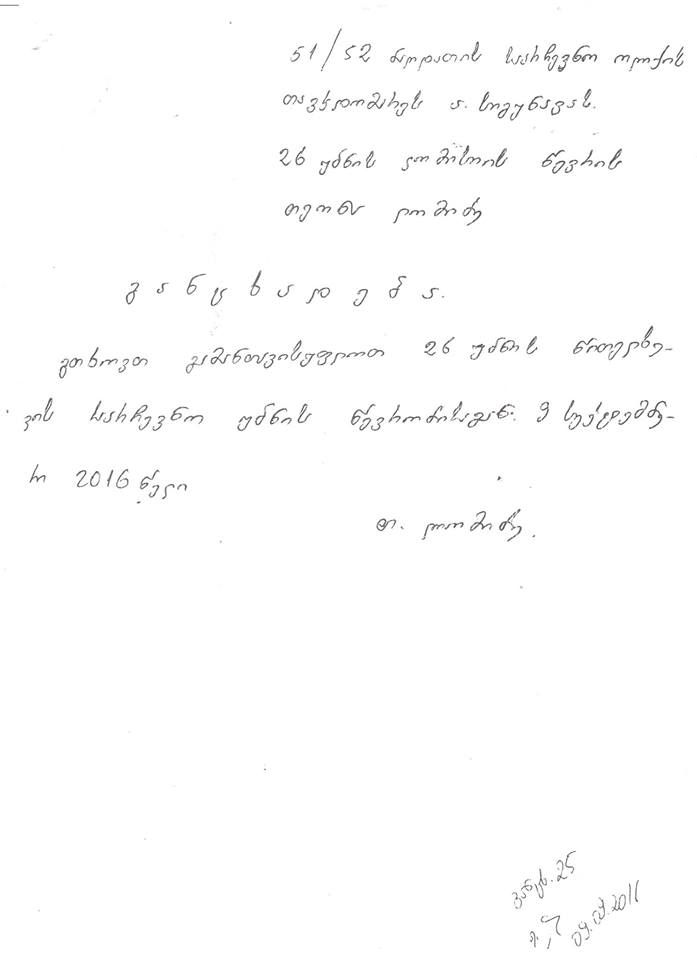 51/52 საარჩევნო ოლქის
თავჯდომარეს ა. სიგუნავას.
26 უბნის კომისიის წევრის
თეონა ლომიძე
განცხადება.
გთხოვთ გამანთავისუფლოთ 26 უბნის წითელხე-
ვის საარჩევნო უბნის წევრობისაგან. 9 სექტემბე-
რი 2016 წელი
თ. ლომიძე.
განცხ. 25